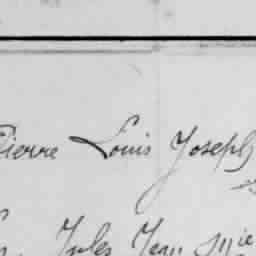 Pierre Louis Joseph
Jules Jean Mie